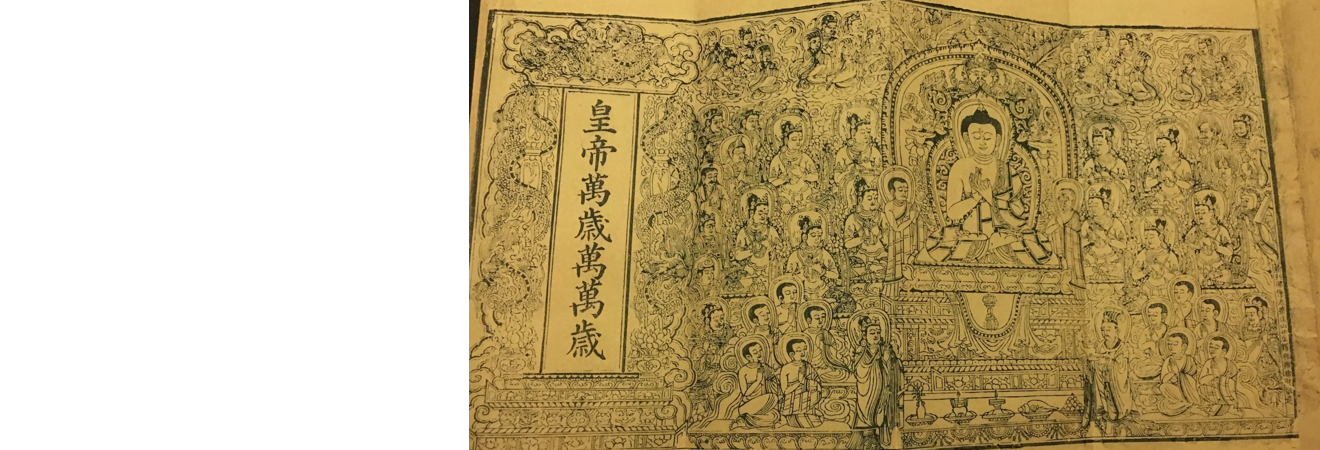 皇帝萬歲萬萬歲